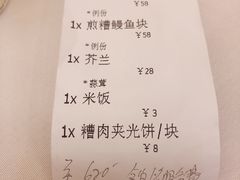 ￥58
*例份
1x 煎糟鳗鱼块
￥58
*例份
1x 芥兰
￥28
*蒜茸
1x 米饭
￥3
1x 糟肉夹光饼/块
￥8